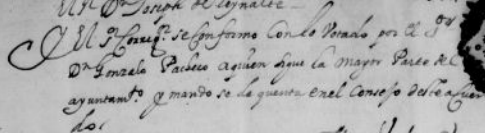 Dn Joseph de Reynalte
El sr Correxr. se Conformo Con lo Votado por el sor
Dn Gonzalo Pacheco aquien sigue la mayor Parte del
ayuntamto. y mando se de quenta enel Consejo deste acuer
do